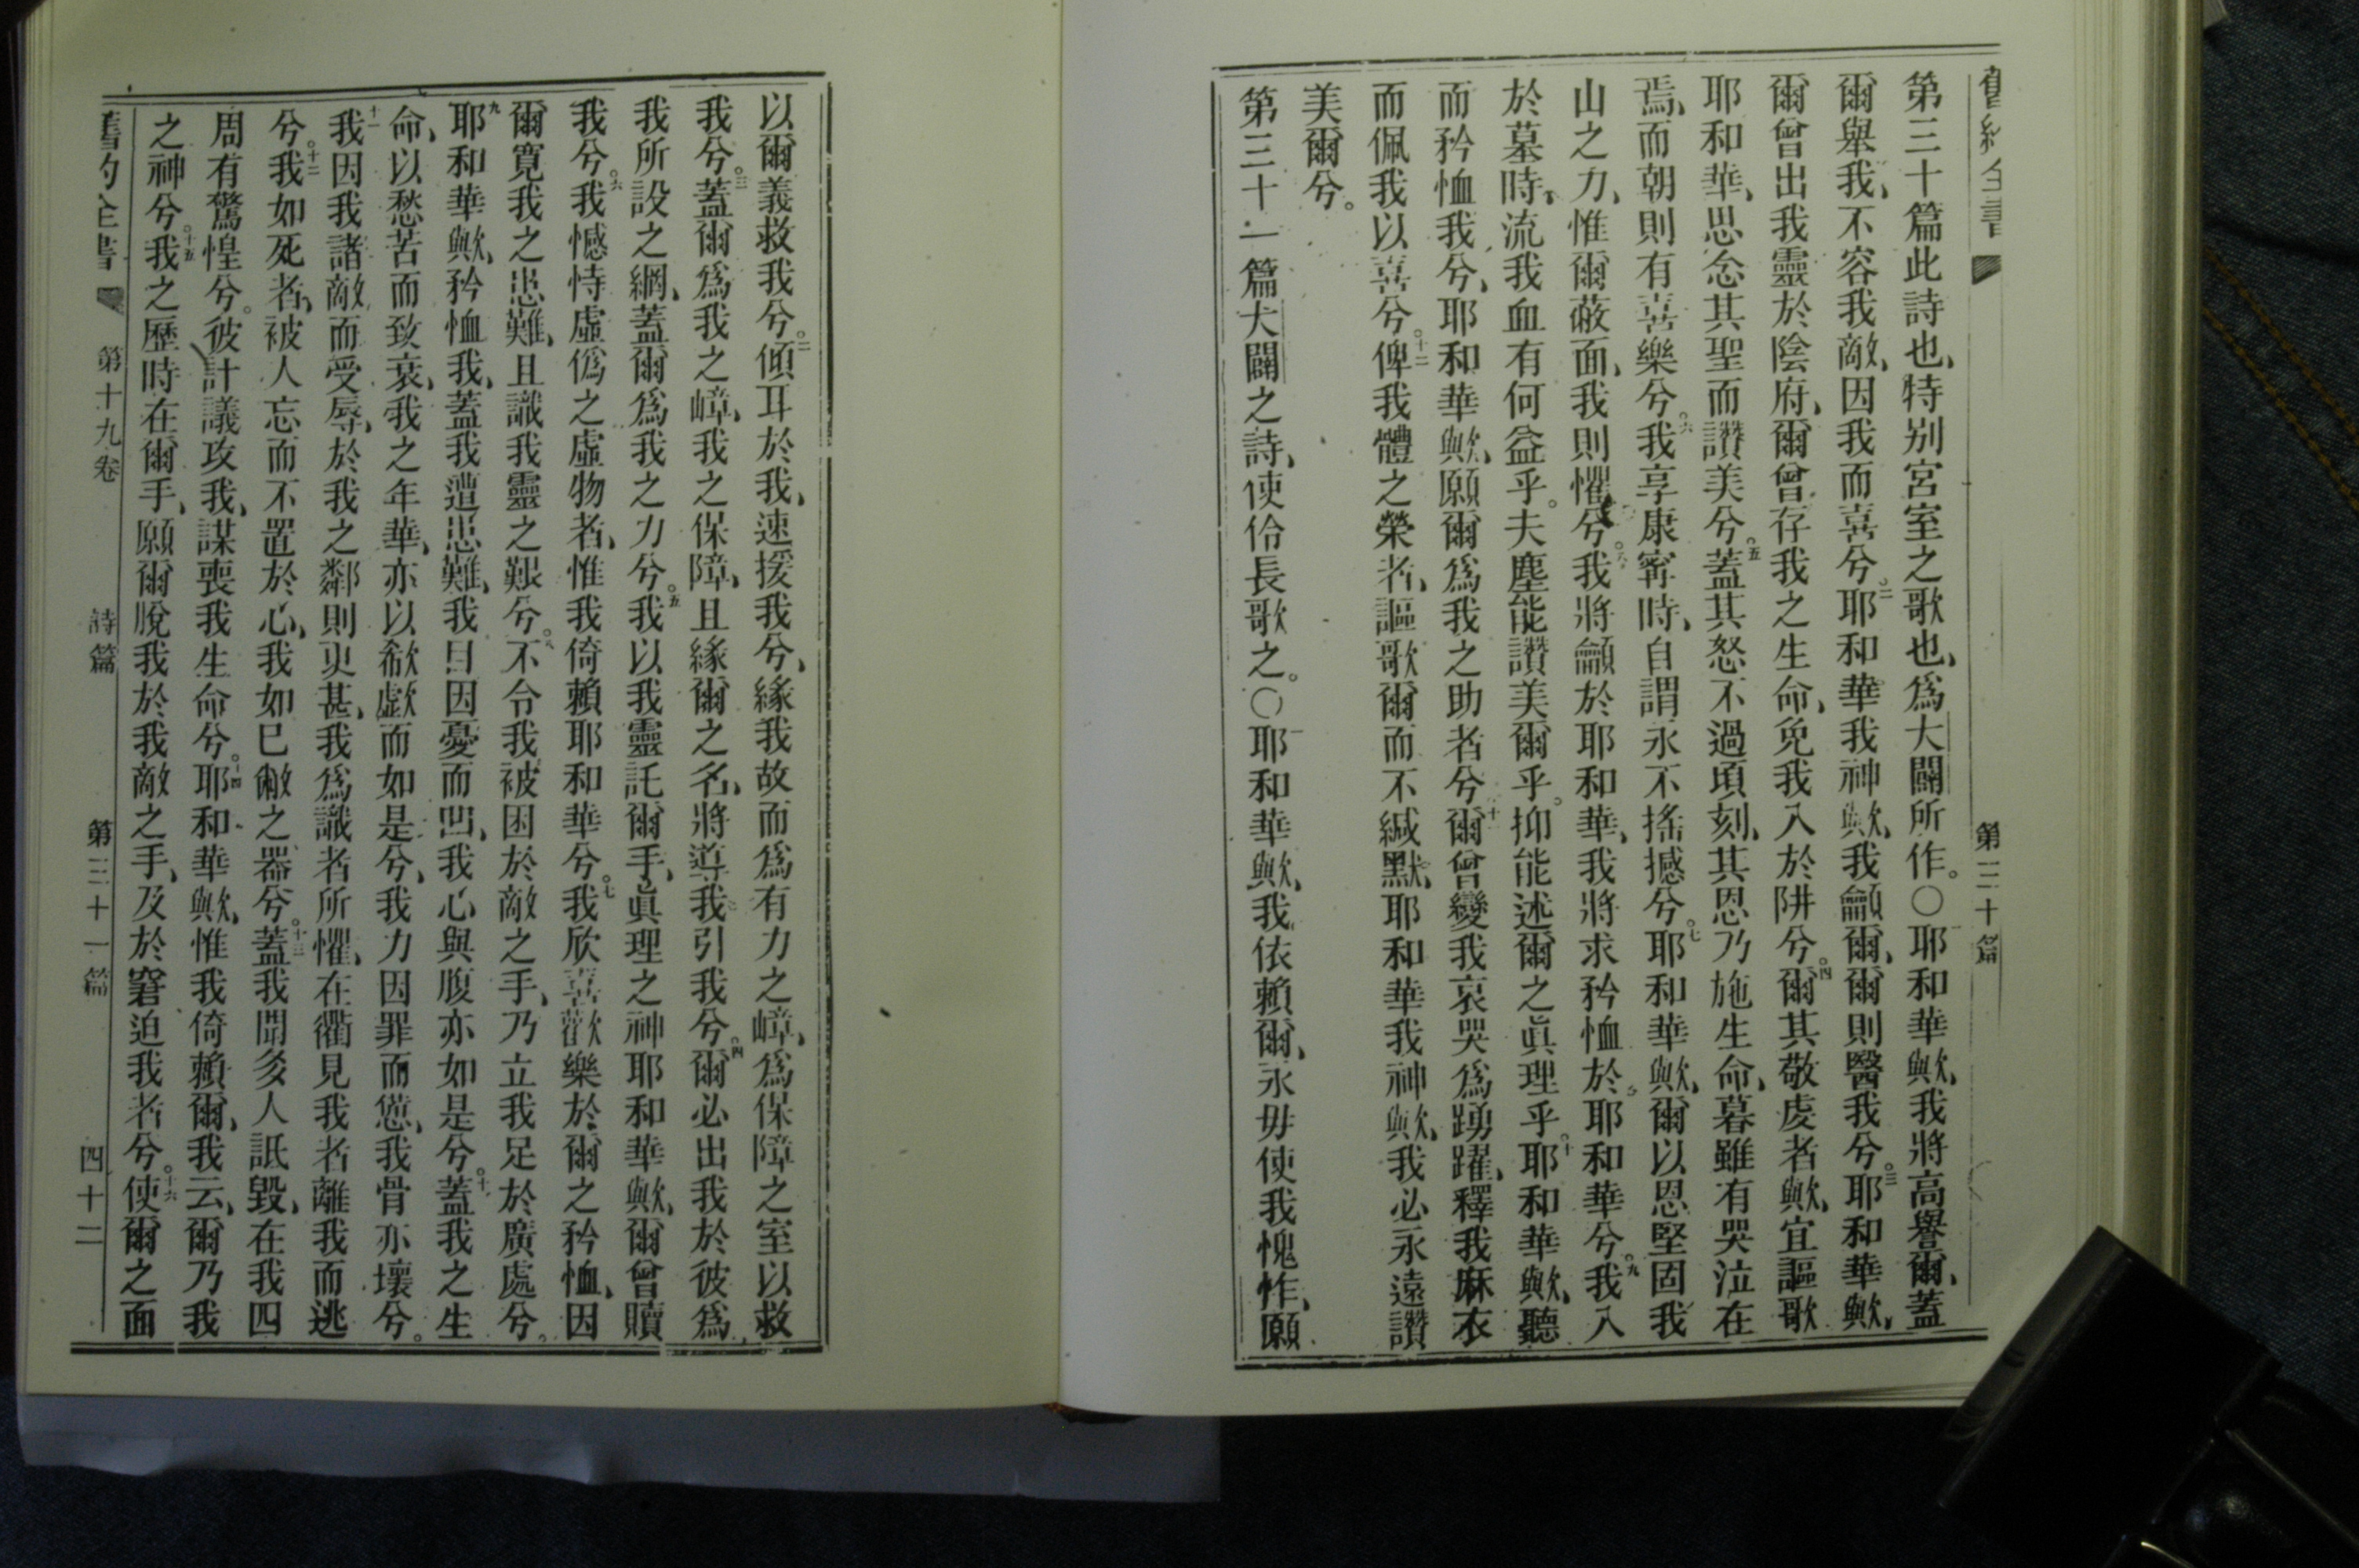 舊約全書 第三十篇
第三十篇此詩也、特别宮室之歌也、爲大闢所作。〇耶和華歟、我將高譽爾、蓋
爾舉我、不容我敵、因我而喜兮。二耶和華我神歟、我龥爾、爾則醫我兮。三耶和華歟、
爾曾出我靈於陰府、爾曾存我之生命、免我入於阱兮。四爾其敬虔者歟、宜謳歌
耶和華、思念其聖而讚美兮。五蓋其怒不過頃刻、其恩乃施生命、暮雖有哭泣在
焉、而朝則有喜樂兮。六我享康寗時、自謂永不搖撼兮。七耶和華歟、爾以恩堅固我
山之力、惟爾蔽面、我則懼兮。八我將龥於耶和華、我將求矜恤於耶和華兮。九我入
於墓時、流我血有何益乎。夫塵能讚美爾乎。抑能述爾之眞理乎。十耶和華歟、聽
而矜恤我兮、耶和華歟、願爾爲我之助者兮。十一爾曾變我哀哭爲踴躍、釋我麻衣
而佩我以喜兮。十二俾我體之榮者、謳歌爾而不緘默、耶和華我神歟、我必永遠讚
美爾兮。
第三十一篇大闢之詩、使伶長歌之。〇一耶和華歟、我依賴爾、永毋使我愧怍、願
以爾義救我兮。二傾耳於我、速援我兮、緣我故而爲有力之嶂、爲保障之室以救
我兮。三蓋爾爲我之嶂、我之保障、且緣爾之名、將導我引我兮。四爾必出我於彼爲
我所設之網、蓋爾爲我之力兮。五我以我靈託爾手、眞理之神耶和華歟、爾曾贖
我兮。六我憾恃虛僞之虛物者、惟我倚賴耶和華兮。七我欣喜歡樂於爾之矜恤、因
爾寛我之患難、且識我靈之艱兮。八不令我被困於敵之手、乃立我足於廣處兮。
九耶和華歟、矜恤我、蓋我遭患難、我目因憂而凹、我心與腹亦如是兮。十蓋我之生
命、以愁苦而致衰、我之年華、亦以欷歔而如是兮、我力因罪而憊、我骨亦壞兮。
十一我因我諸敵而受辱、於我之鄰則更甚、我爲識者所懼、在衢見我者離我而逃
兮。十二我如死者、被人忘而不置於心、我如已敝之器兮。十三蓋我聞多人詆毀、在我四
周有驚惶兮。彼計議攻我、謀喪我生命兮。十四耶和華歟、惟我倚賴爾、我云、爾乃我
之神兮。十五我之歷時在爾手、願爾脫我於我敵之手、及於窘迫我者兮。十六使爾之面
舊約全書 第十九卷 詩篇 第三十一篇 四十二